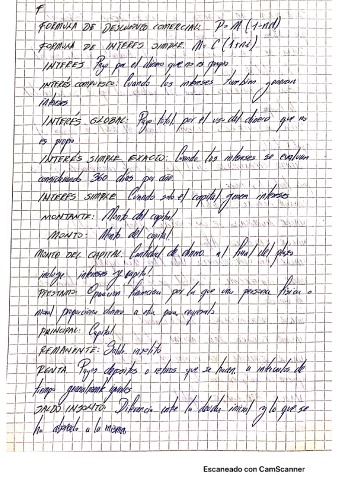 F
FORMULA DE DESCUENTO COMERCIAL: P= M (1-nd)
FORMULA DE INTERES SIMPLE M= C (1+ni)
INTERES Pago por el dinero que no es propio
INTERÉS COMPUESTO: Cuando los intereses tambien generan
intereses
INTERÉS GLOBAL: Pago total por el uso del dinero que no
es propio
INTERÉS SIMPLE EXACTO: Cuando los intereses se evaluan
considerando 360 dias por año
INTERES SIMPLE Cuando solo el capital genera intereses
MONTANTE: Monto del capital
MONTO: Monto del capital
MONTO DEL CAPITAL: Cantidad de dinero al final del plazo
incluye intereses y capital.
PRESTAMO: Operacion financiera por la que una persona fisica o
moral proporciona dinero a otra para
PRINCIPAL: Capital
REMANENTE: Saldo insoluto
RENTA Pagos depositos o retiros que se hacen a intervalos de
tiempo generalmente iguales
SALDO INSOLUTO: Diferencia entre la deuda inicial y lo que se
ha abonado a la misma.
Escaneado con CamScanner